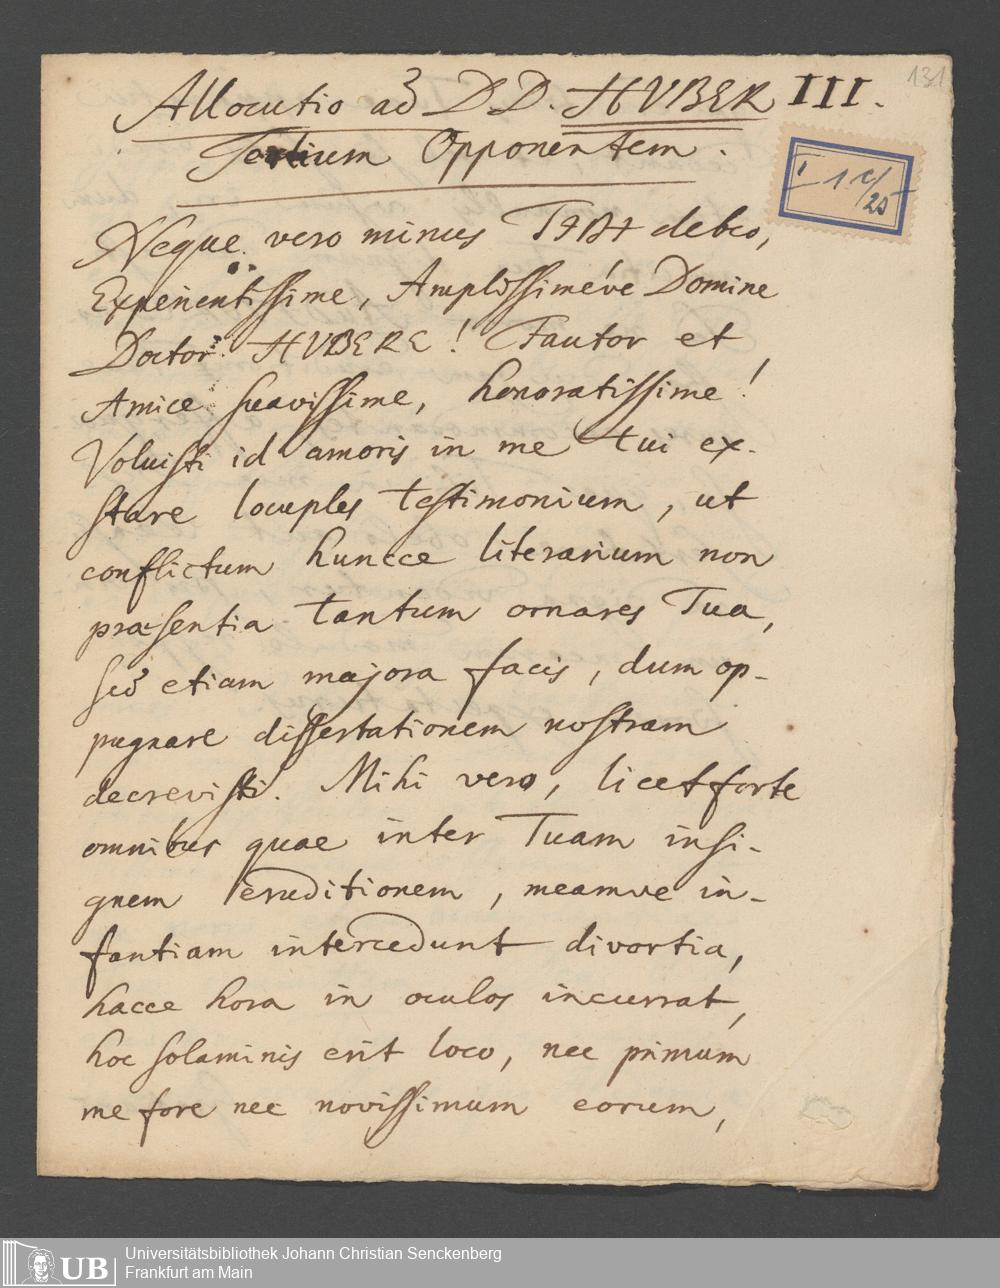 131
Allocutio ad D. D. HVBER III.
Tertium Opponentem.
Neque vero minus TIBI debeo,
Experientissime, Amplissimeve Domine
Doctor HVBERE! Fautor et
Amice suavissime, honoratissime!
Voluisti id amoris in me tui ex-
stare locuples testimonium, ut
conflictum huncce literarium non
præsentia tantum ornares Tua,
sed etiam majora facis, dum op-
pugnare dissertationem nostram
decrevisti. Mihi vero, licet forte
omnibus quae inter Tuam insi-
gnem eruditionem, meamve in-
fantiam intercedunt divortia,
hacce hora in oculos incurrat,
hoc solaminis erit loco, nec primum
me fore nec novissimum eorum,
Universitätsbibliothek Johann Christian Senckenberg
UB Frankfurt am Main